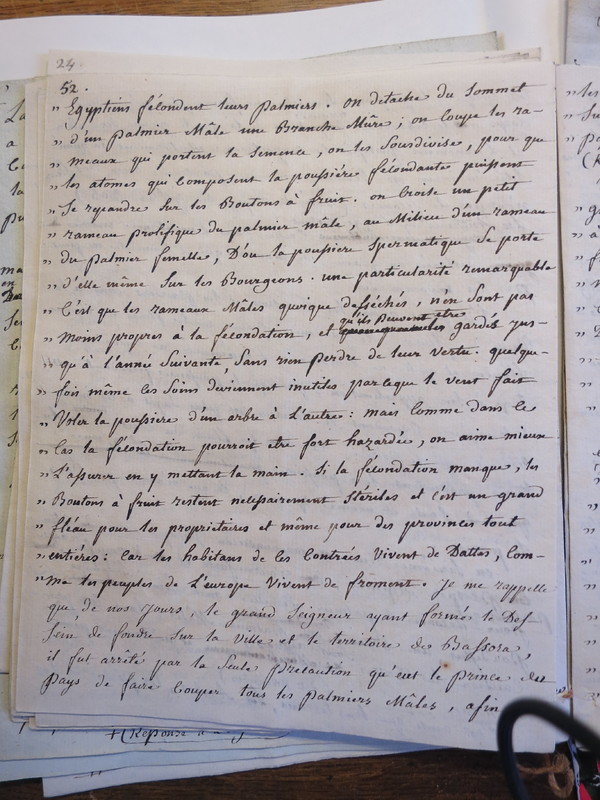 24.
52.
" Egyptiens fécondent leurs palmiers. on detache du sommet
" d'un palmier Mâle une Branche Mûre; on coupe les ra-
" meaux qui portent la semence, on les sousdivise, pour que
" les atomes qui composent la poussiére fécondante puissent
" se repandre sur les Boutons à fruit. on croise un petit
" rameau prolifique du palmier mâle, au Milieu d'un rameau
" du palmier femelle, D'ou la poussiere spermatique se porte
" d'elle même sur les Bourgeons. une particularité remarquable
" C'est que les rameaux Mâles quoique desséchés, n'en sont pas
qu'ils peuvent etre
" moins propres à la fécondation, et gardés jus-
" qu'à l'année suivante, sans rien perdre de leur vertu. quelque-
" fois même ces soins deviennent inutiles parceque le vent fait
" Voler la poussiere d'un arbre à L'autre: mais comme dans ce
" Cas la fécondation pourroit etre fort hazardée, on aime mieux
" L'assurer en y mettant la main. si la fécondation manque, les
" Boutons à fruit restent necessairement stériles et c'est un grand
" fléau pour les proprietaires et même pour des provinces tout
" entiéres: car les habitans de ces Contrées Vivent de Dattes, com-
" me les peuples de L'europe vivent de froment. je me rappelle
que de nos jours, le grand seigneur ayant formé le Des
sein de fondre sur la ville et le territoire de Bassora,
il fut arrêté par la seule precaution qu'eut le prince du
pays de faire couper tous les palmiers Mâles, afin
+ (Reponse a